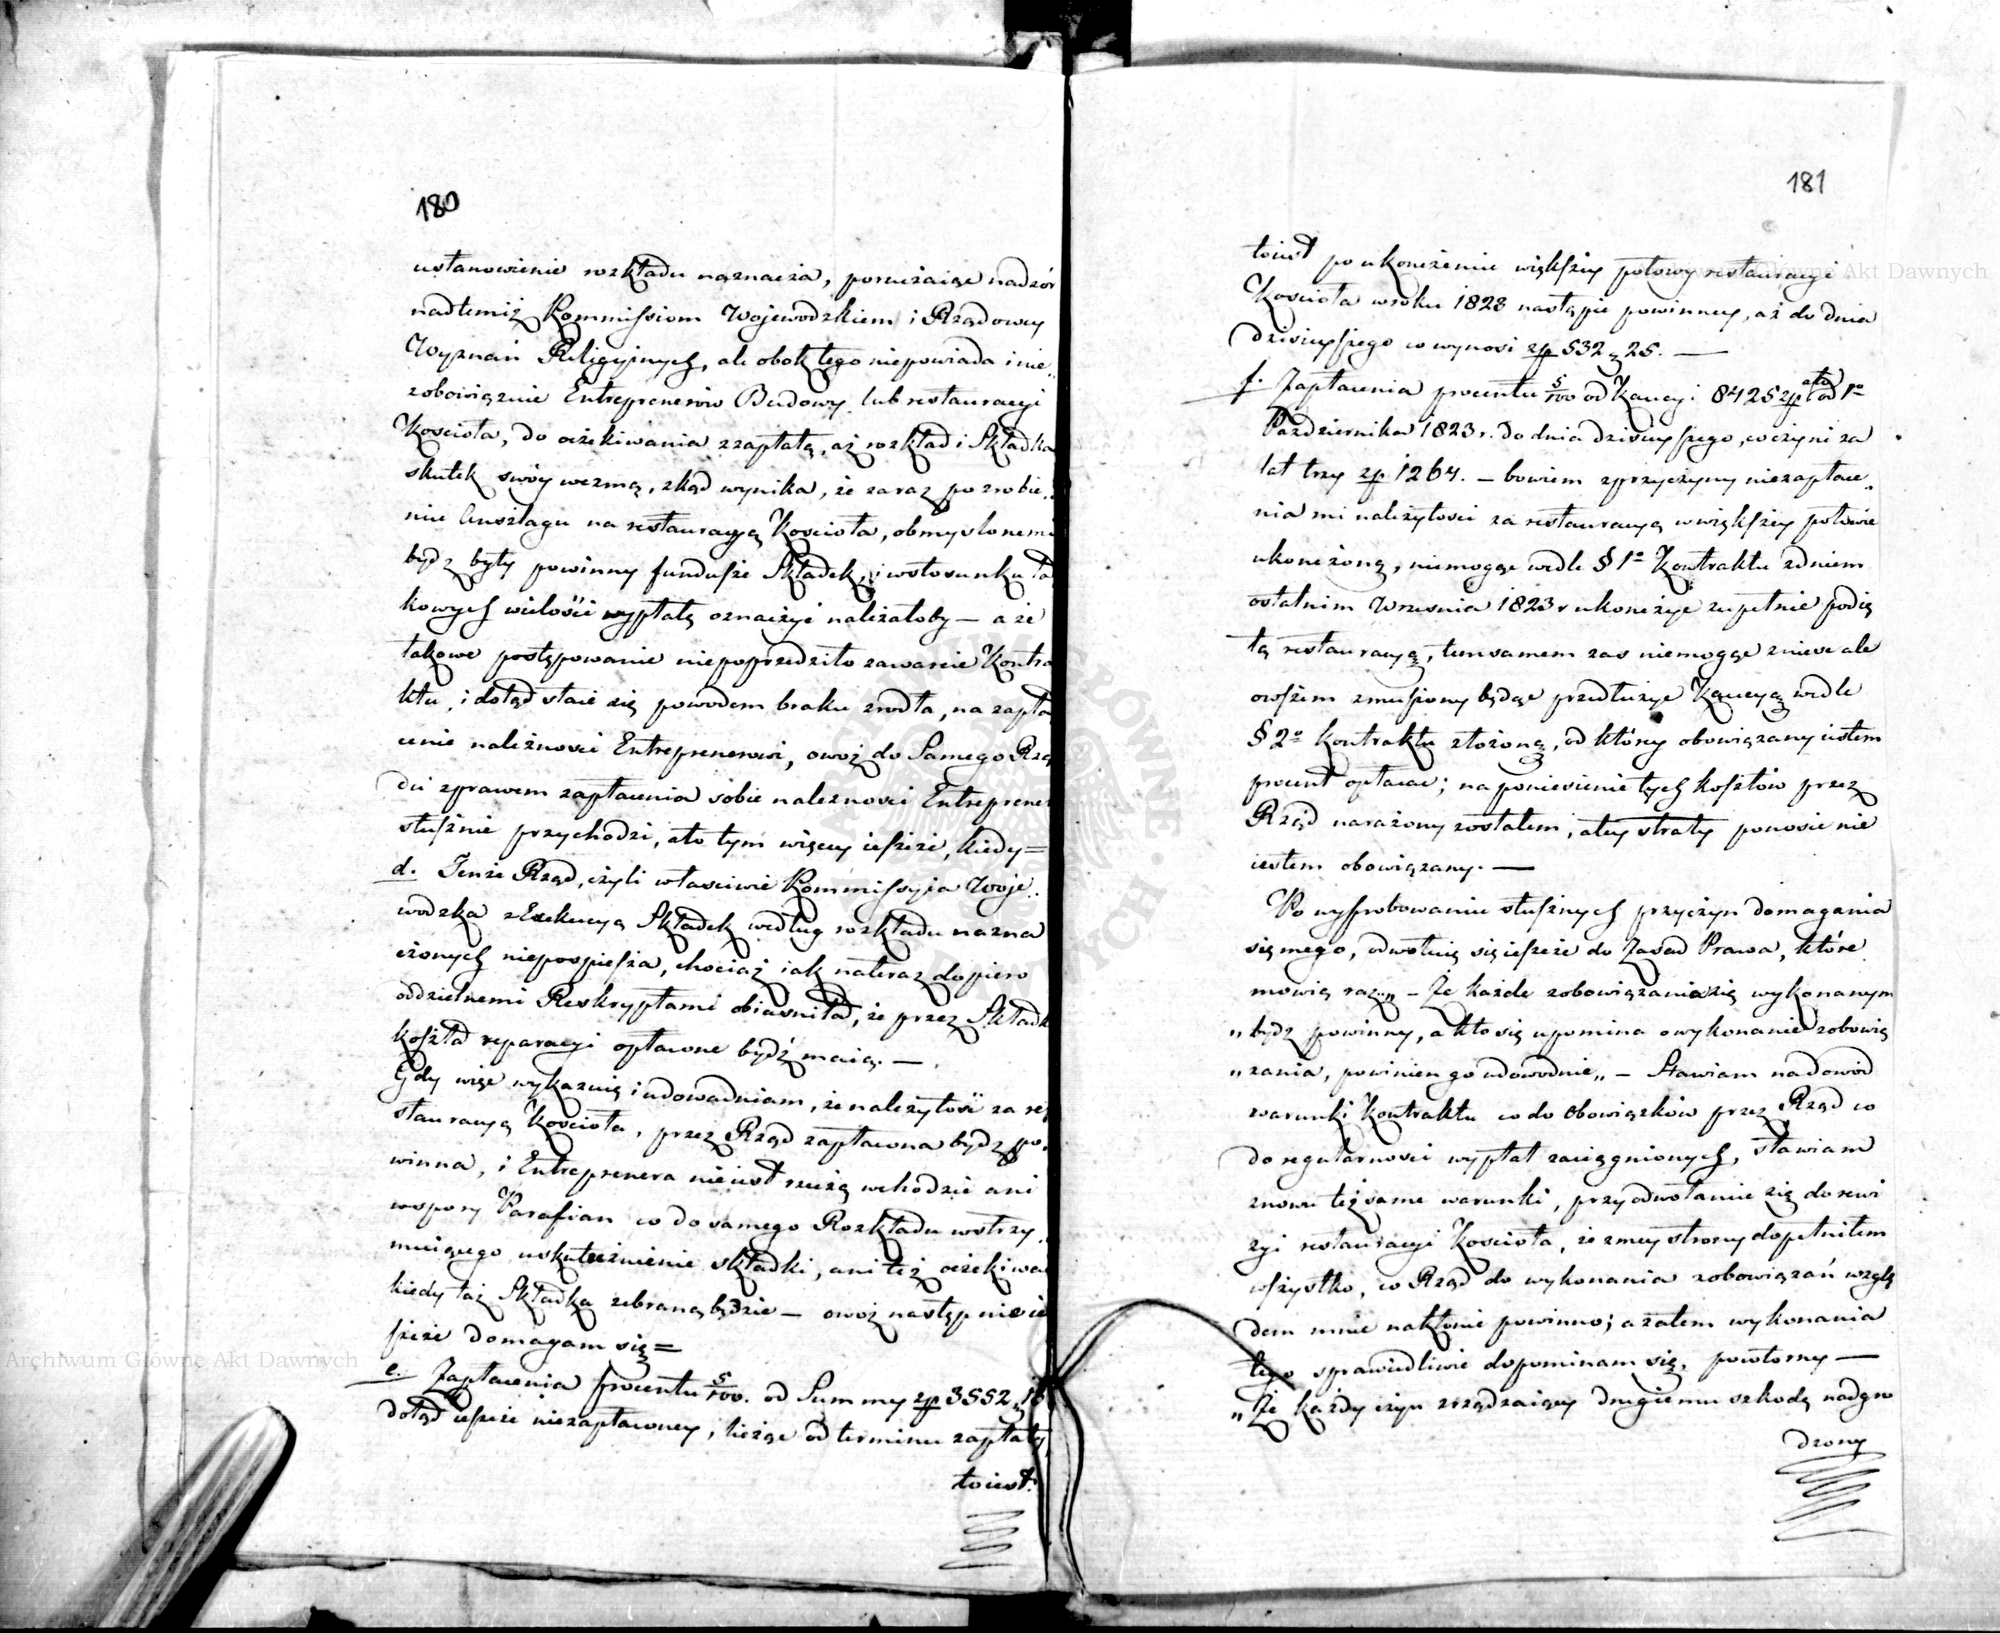 180
ustanowienie rozkładu naznacza, poruczaiąc nadzór
nad temiż Kommissiom Wojewodzkiem i Rządowey
Wyznań Religyinych, ale obok tego niepowiada i nie„
zobowiązuie Entreprenerów Budowy lub restauracyi
Kościoła, do oczekiwania z zapłatą, aż rozkład i Składka
skutek swóy wezmą, zkąd wynika, że zaraz po zrobie„
niu Anszlagu na restauracyą Kościoła, obmyslonemi
bydz były powinny fundusze Składek, i w stosunku ta
kowych wielości wypłatę oznaczyć należałoby — a że
takowe postępowanie niepoprzedziło zawarcie Kontra
ktu, i dotąd staie się powodem braku zrodła, na zapła
cenie należności Entreprenerowi, owoż do Samego Rzą
du z prawem zapłacenia sobie nalezności Entreprener
słusznie przychodzi, a to tym więcey ieszcze, kiedy=
d. Tenże Rząd, czyli właściwie Kommissyia Woje„
wodzka z Exekucyą Składek według rozkładu nazna
czonych niepospiesza, chociaż iak nateraz dopiero
oddzielnemi Reskryptami obiasniła, że przez Składk
koszta reparacyi opłacone bydź maią. —
Gdy więc wykazuię i udowadniam, że należytość za re
stauracyą Kościoła, przez Rząd zapłacona bydz po„
winna, i Entreprenera nie iest rzeczą wchodzić ani
w spory Parafian co do samego Rozkładu wstrzy„
muiącego uskutecznienie składki, ani też oczekiwać
kiedy taż Składka zebraną będzie — owoż następnie ie
szcze domagam się=
e. Zapłacenia procentu 5/100. od Summy zp 3552 g 16
dotąd ieszcze niezapłaconey, licząc od terminu zapłaty
to iest.
181
to iest po ukonczeniu większey połowy restauracyi
Kościoła w roku 1823 nastąpić powinney, aż do dnia
dzisieyszego co wynosi zp 532 g 25. —
f. Zapłacenia procentu 5/100 od Kaucyi 8425 zp od 1o
Pazdziernika 1823 r. do dnia dzisieyszego, co czyni za
lat trzy zp 1264. — bowiem z przyczyny niezapłace„
nia mi należytości za restauracyą w większey połowie
ukonczoną, niemogąc wedle § 1o Kontraktu z dniem
ostatnim Wrzesnia 1823 r ukonczyć zupełnie podię
tą restauracyą, temsamem zas niemogąc zniesć ale
owszem zmuszony będąc przedłużyć Kaucyą wedle
§ 2o Kontraktu złożoną, od który obowiązany iestem
procent opłacac; na poniesienie tych kosztów przez
Rząd narażony zostałem, atey straty ponosić nie
iestem obowiązany. —
Po wyprobowaniu słusznych przyczyn domagania
się mego, odwołuię się ieszcze do Zasad Prawa, które
mowią raz. „ — Że każde zobowiązania się wykonanym
„bydz powinny, a kto się upomina o wykonanie zobowią
„zania, powinien go udowodnić„ — Stawiam na dowód
warunki Kontraktu co do Obowiązków przez Rząd co
do regularności wypłat zaciągnionych, stawiam
znowu też same warunki, przy odwołaniu się do rewi
zyi restauracyi Kościoła, że z mey strony dopełniłem
wszystko, co Rząd do wykonania zobowiązań wzglę
dem mnie nakłonić powinno; a zatem wykonania
tego sprawiedliwie dopominam się, powtorny —
„Że każdy czyn zrządzaiący drugiemu szkodę nadgro
dzony